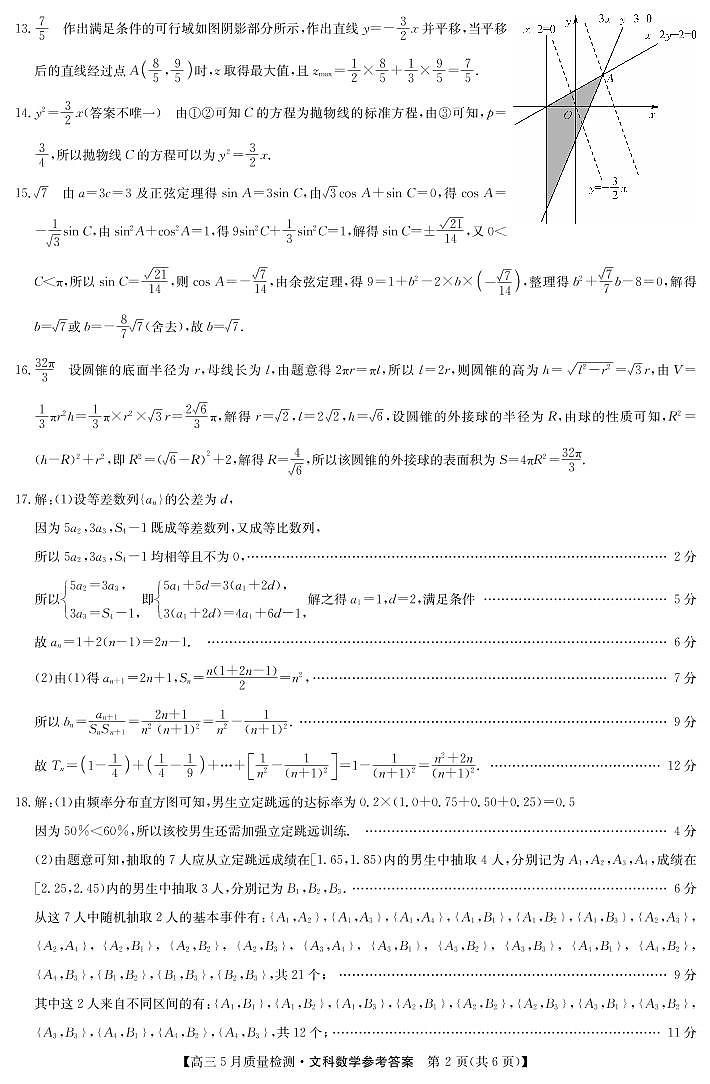 13. 7/5 作出满足条件的可行域如图阴影部分所示,作出直线 y=-3/2x 并平移,当平移
后的直线经过点 A(8/5,9/5)时,z 取得最大值,且 zmax=1/2×8/5+1/3×9/5=7/5.
x+2=0
y
3x-y-3=0
x-2y+2=0
A
O
x
y=-3/2x
14. y²=3/2x(答案不唯一) 由①②可知 C 的方程为抛物线的标准方程,由③可知,p=
3/4,所以抛物线 C 的方程可以为 y²=3/2x.
15. √7 由 a=3c=3 及正弦定理得 sin A=3sin C,由√3cos A+sin C=0,得 cos A=
-1/√3 sin C,由 sin²A+cos²A=1,得 9sin²C+1/3sin²C=1,解得 sin C=±√21/14,又 0<
C<π,所以 sin C=√21/14,则 cos A=-√7/14,由余弦定理,得 9=1+b²-2×b×(-√7/14),整理得 b²+√7/7b-8=0,解得
b=√7或 b=-8/7√7(舍去),故 b=√7.
16. 32π/3 设圆锥的底面半径为 r,母线长为 l,由题意得 2πr=πl,所以 l=2r,则圆锥的高为 h=√(l²-r²)=√3r,由 V=
1/3πr²h=1/3π×r²×√3r=2√6/3π,解得 r=√2,l=2√2,h=√6,设圆锥的外接球的半径为 R,由球的性质可知,R²=
(h-R)²+r²,即 R²=(√6-R)²+2,解得 R=4/√6,所以该圆锥的外接球的表面积为 S=4πR²=32π/3.
17. 解:(1)设等差数列{aₙ}的公差为 d,
因为 5a₂,3a₃,S₄-1 既成等差数列,又成等比数列,
所以 5a₂,3a₃,S₄-1 均相等且不为 0,…… 2 分
所以{5a₂=3a₃, 3a₃=S₄-1, 即{5a₁+5d=3(a₁+2d), 3(a₁+2d)=4a₁+6d-1, 解之得 a₁=1,d=2,满足条件 …… 5 分
故 aₙ=1+2(n-1)=2n-1. …… 6 分
(2)由(1)得 aₙ₊₁=2n+1,Sₙ=n(1+2n-1)/2=n²,…… 7 分
所以 bₙ=aₙ₊₁/(SₙSₙ₊₁)=(2n+1)/(n²(n+1)²)=1/n²-1/(n+1)². …… 9 分
故 Tₙ=(1-1/4)+(1/4-1/9)+…+[1/n²-1/(n+1)²]=1-1/(n+1)²=(n²+2n)/(n+1)². …… 12 分
18. 解:(1)由频率分布直方图可知,男生立定跳远的达标率为 0.2×(1.0+0.75+0.50+0.25)=0.5
因为 50%<60%,所以该校男生还需加强立定跳远训练. …… 4 分
(2)由题意可知,抽取的 7 人应从立定跳远成绩在[1.65,1.85)内的男生中抽取 4 人,分别记为 A₁,A₂,A₃,A₄,成绩在
[2.25,2.45)内的男生中抽取 3 人,分别记为 B₁,B₂,B₃. …… 6 分
从这 7 人中随机抽取 2 人的基本事件有:{A₁,A₂},{A₁,A₃},{A₁,A₄},{A₁,B₁},{A₁,B₂},{A₁,B₃},{A₂,A₃},
{A₂,A₄},{A₂,B₁},{A₂,B₂},{A₂,B₃},{A₃,A₄},{A₃,B₁},{A₃,B₂},{A₃,B₃},{A₄,B₁},{A₄,B₂},
{A₄,B₃},{B₁,B₂},{B₁,B₃},{B₂,B₃},共 21 个; …… 9 分
其中这 2 人来自不同区间的有:{A₁,B₁},{A₁,B₂},{A₁,B₃},{A₂,B₁},{A₂,B₂},{A₂,B₃},{A₃,B₁},{A₃,B₂},
{A₃,B₃},{A₄,B₁},{A₄,B₂},{A₄,B₃},共 12 个;…… 11 分
【高三 5 月质量检测·文科数学参考答案 第 2 页(共 6 页)】